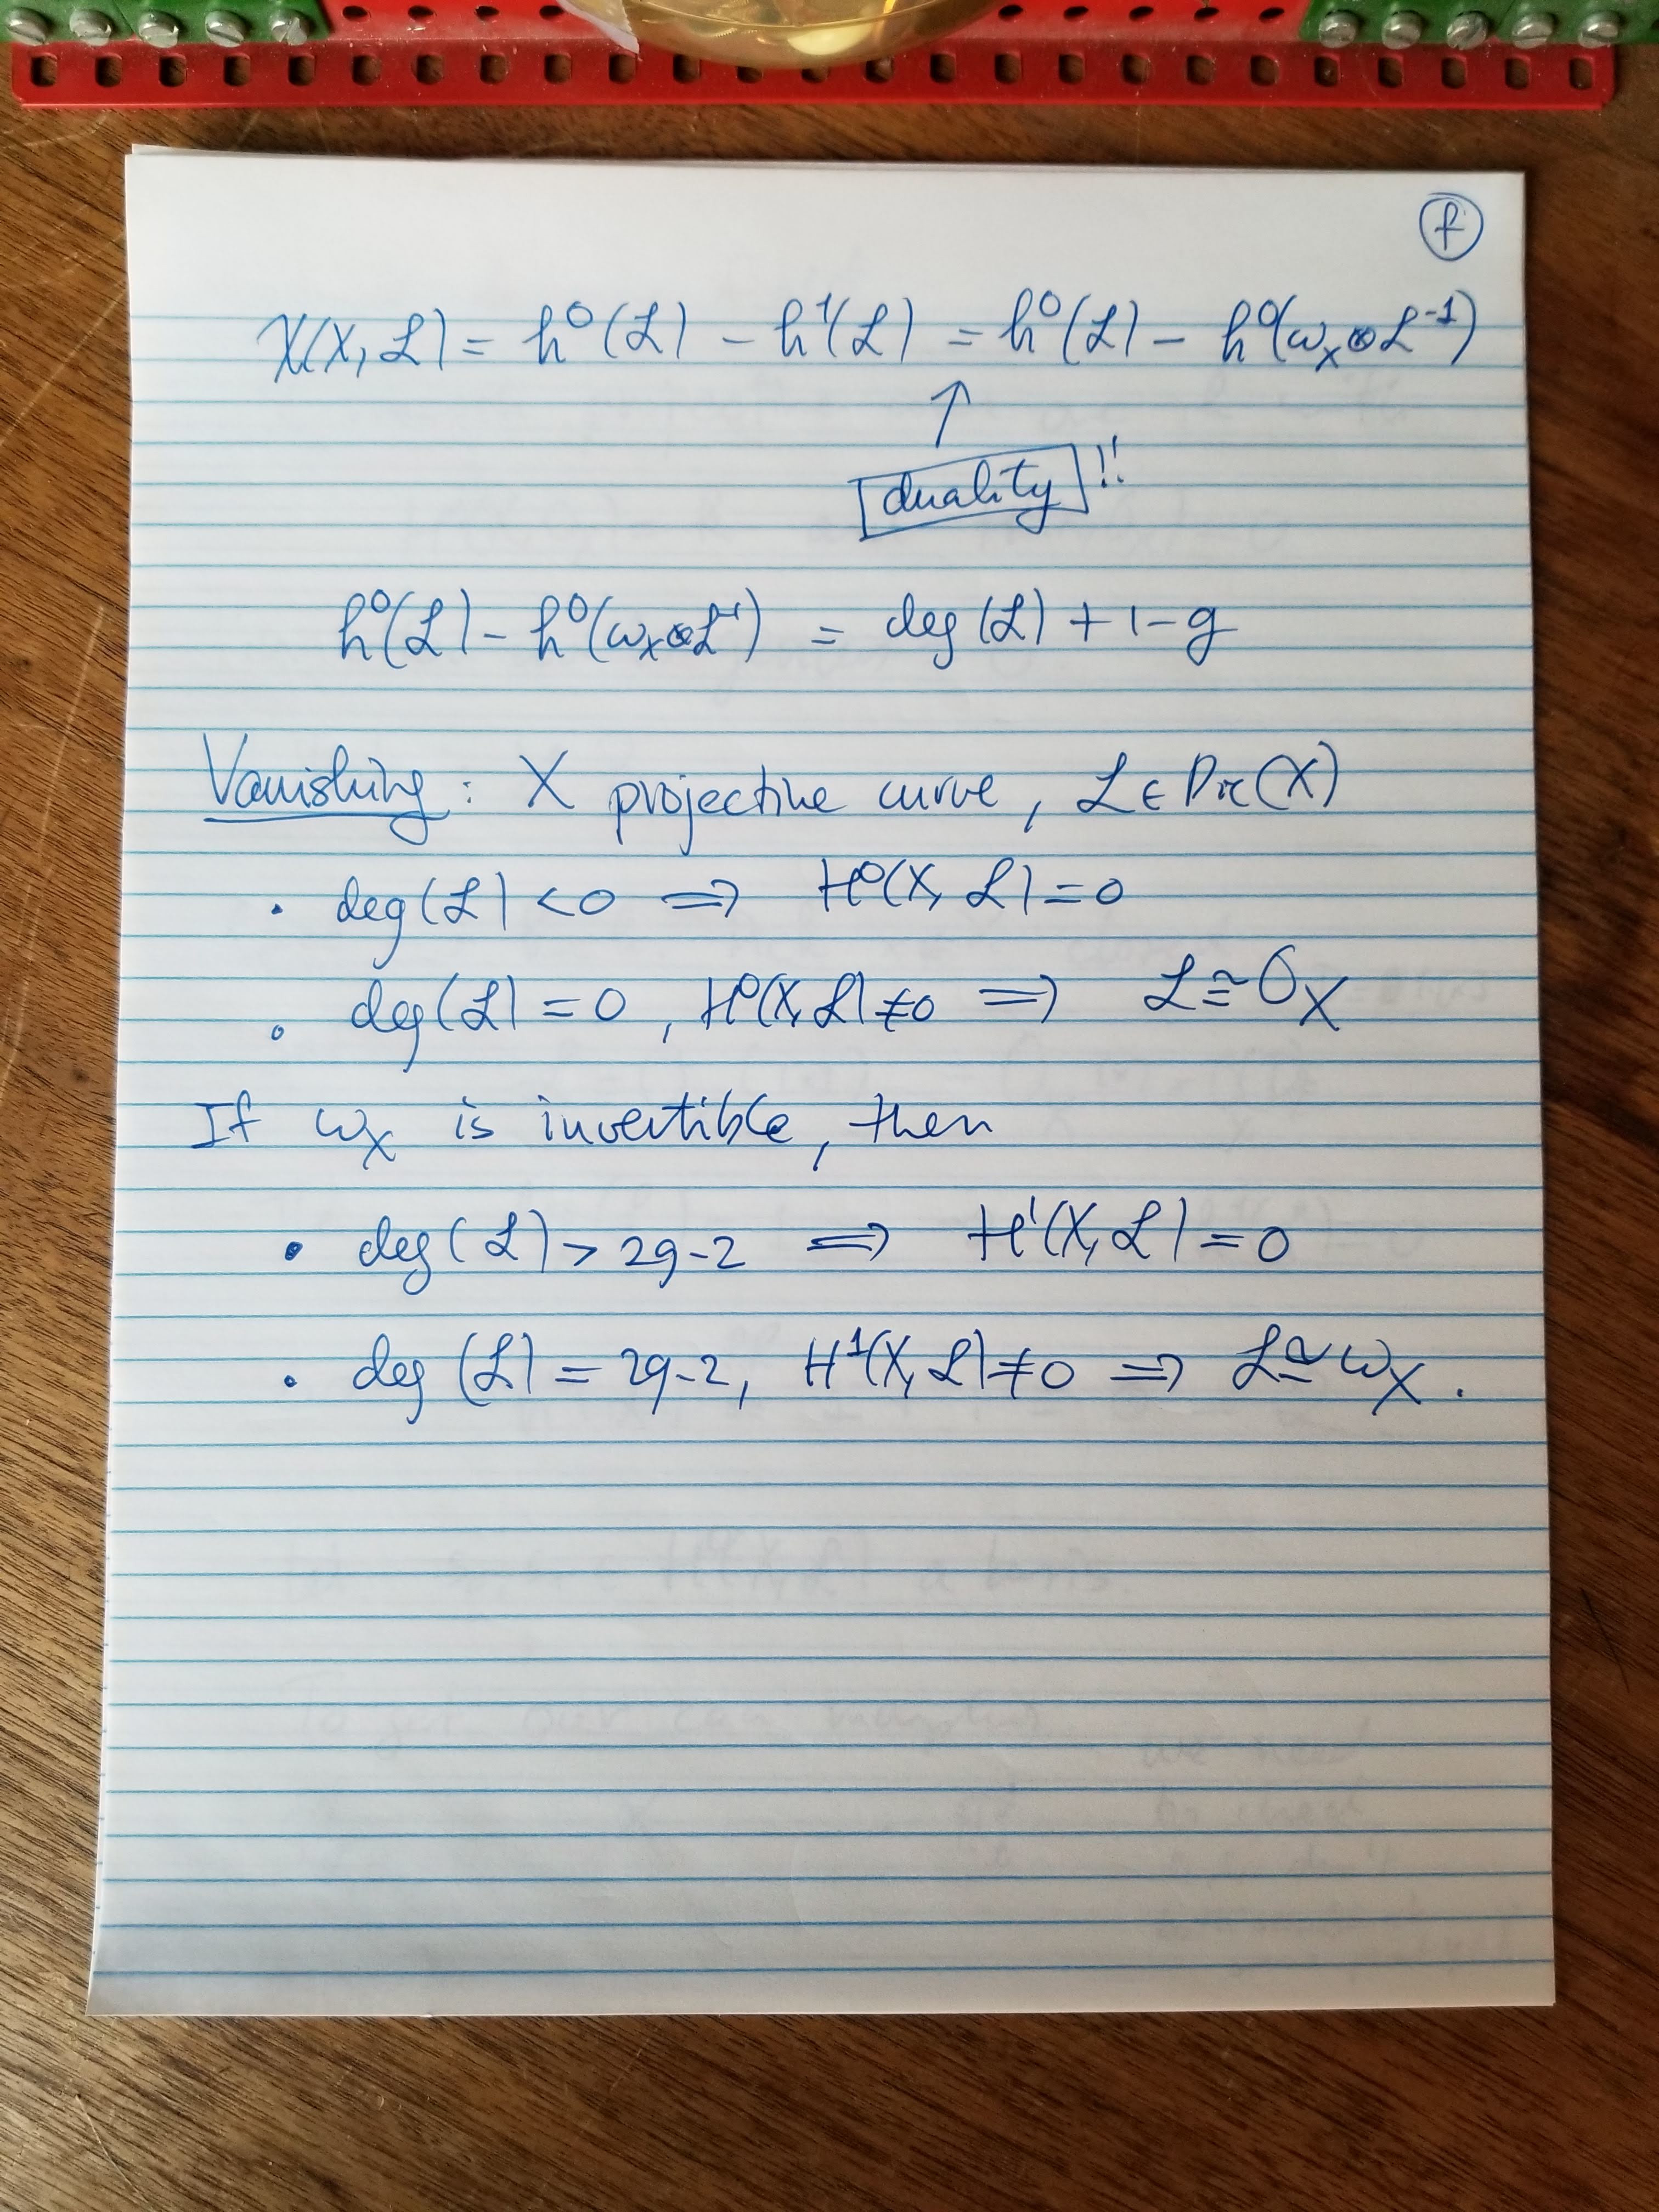 f
χ(X, ℒ) = h⁰(ℒ) - h¹(ℒ) = h⁰(ℒ) - h⁰(ω_X⊗ℒ⁻¹)
↑
duality !!
h⁰(ℒ) - h⁰(ω_X⊗ℒ⁻¹) = deg(ℒ) + 1-g
Vanishing: X projective curve, ℒ ∈ Pic(X)
• deg(ℒ) < 0 ⟹ H⁰(X, ℒ) = 0
• deg(ℒ) = 0, H⁰(X, ℒ) ≠ 0 ⟹ ℒ ≅ 𝒪_X
If ω_X is invertible, then
• deg(ℒ) > 2g-2 ⟹ H¹(X, ℒ) = 0
• deg(ℒ) = 2g-2, H¹(X, ℒ) ≠ 0 ⟹ ℒ ≅ ω_X.